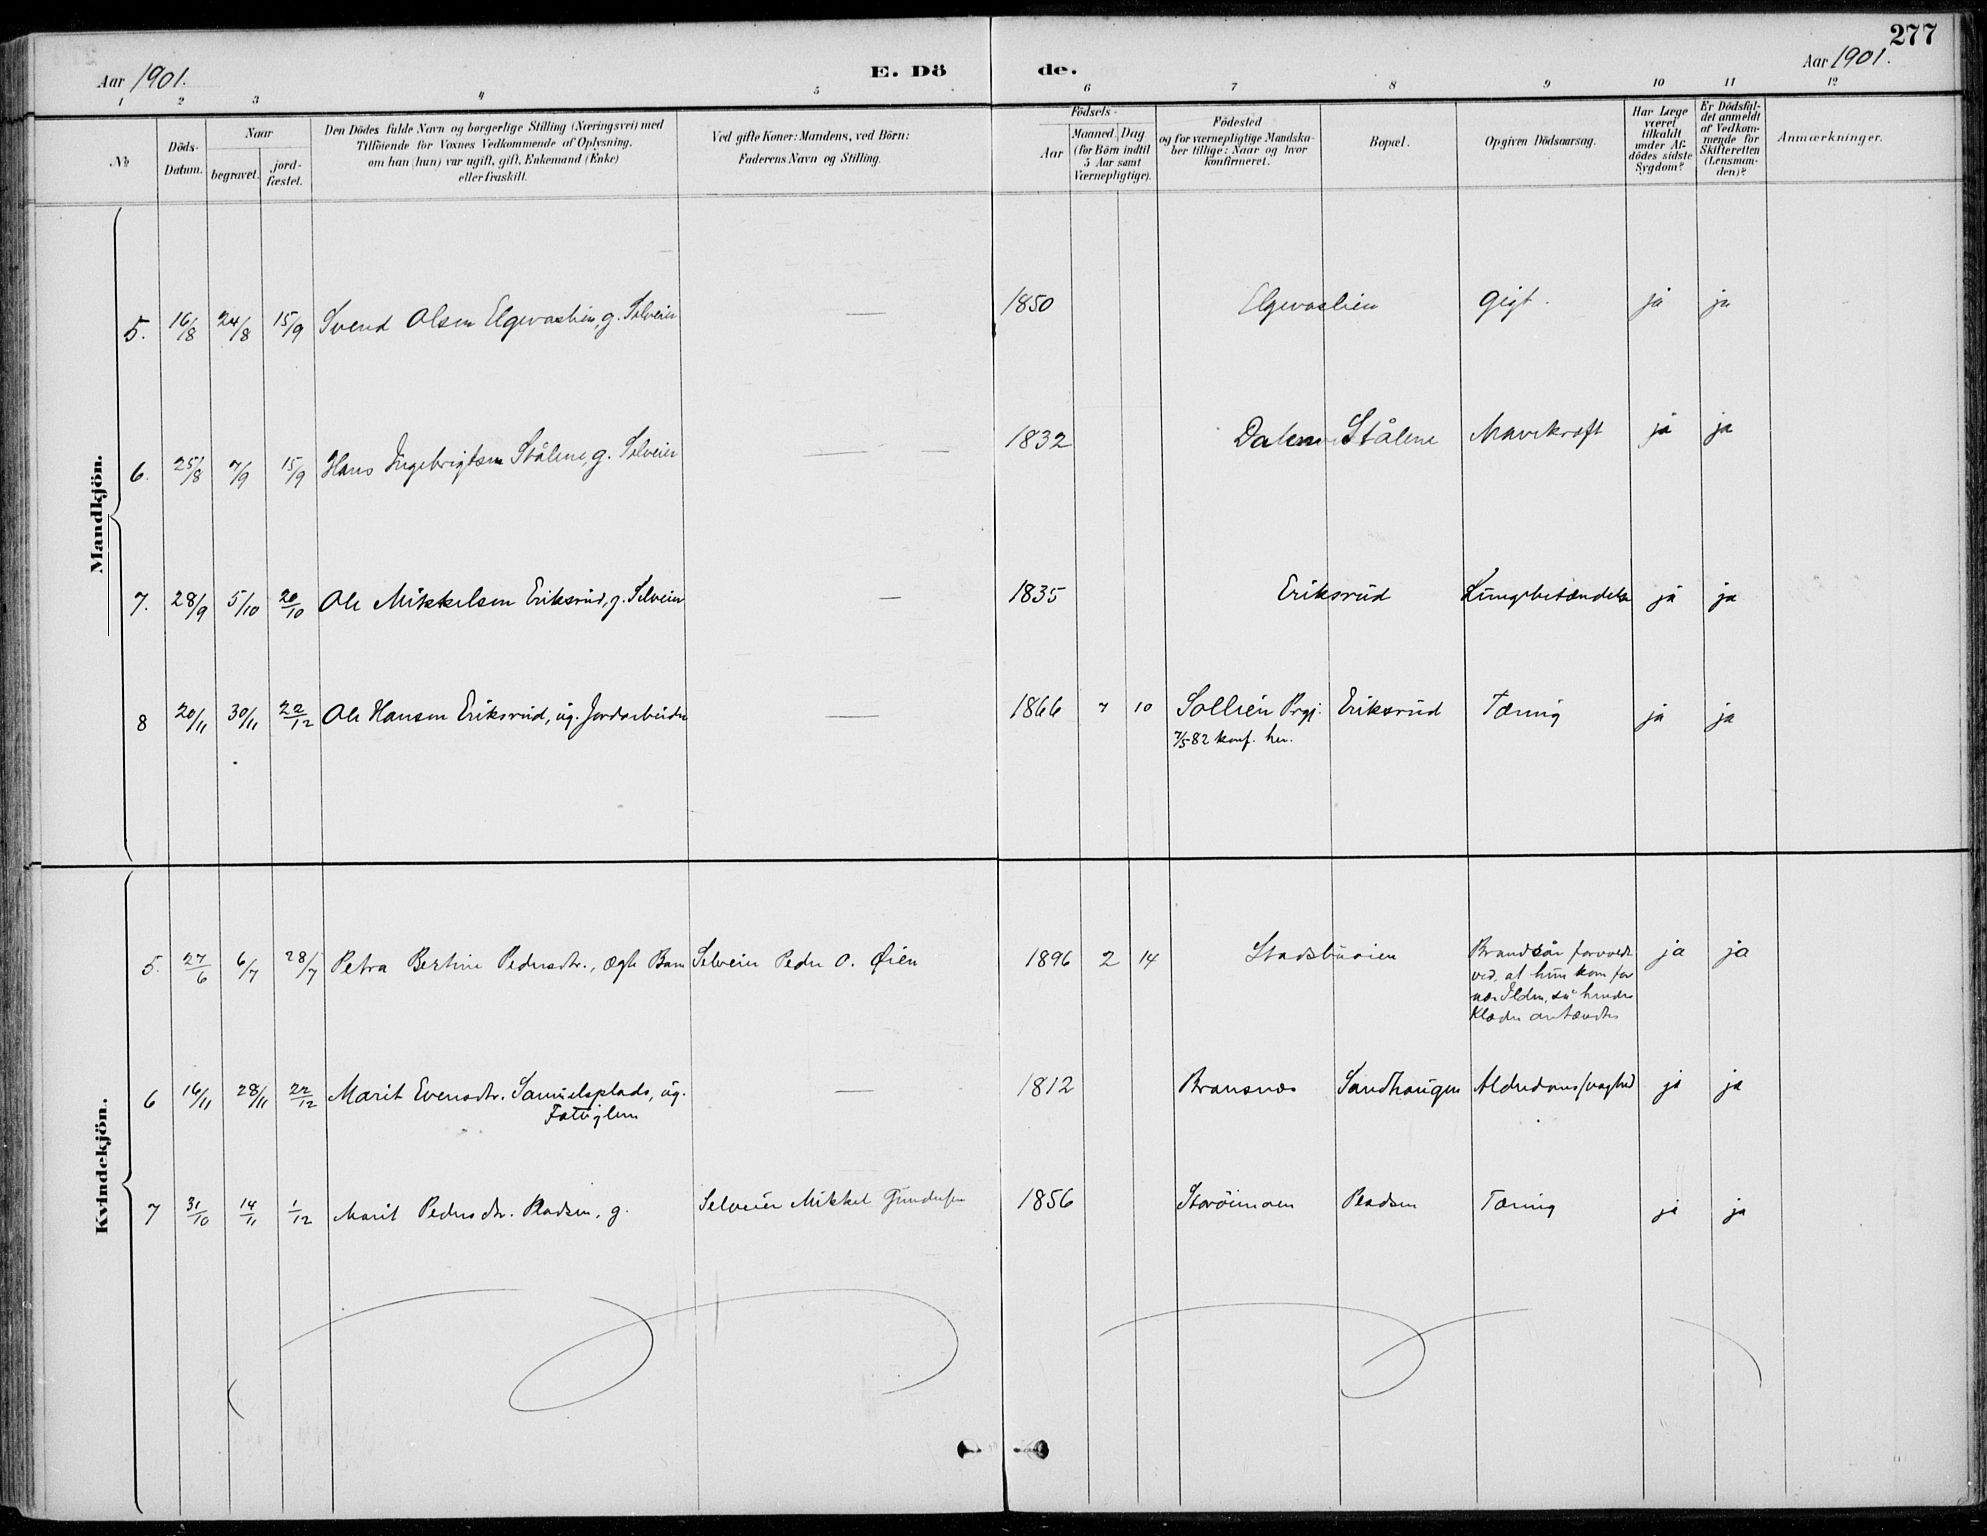 277
Aar 1901.
E. Dö
de.
Aar 1901.
1 2 3 4 5 6 7 8 9 10 11 12
№
Döds-
Datum.
Naar
begravet.
jord-
fæstet.
Den Dödes fulde Navn og borgerlige Stilling (Næringsvei) med
Tilföiende for Voxnes Vedkommende af Oplysning,
om han (hun) var ugift, gift, Enkemand (Enke)
eller fraskilt.
Ved gifte Koner: Mandens, ved Börn:
Faderens Navn og Stilling.
Födsels-
Aar
Maaned. Dag
(for Börn indtil
5 Aar samt
Værnepligtige).
Födested
og for værnepligtige Mandska-
ber tillige: Naar og hvor
konfirmeret.
Bopæl.
Opgiven Dödsaarsag.
Har Læge
været
tilkaldt
under Af-
dödes sidste
Sygdom?
Er Dödsfal-
det anmeldt
af Vedkom-
mende for
Skifteretten
(Lensman-
den)?
Anmærkninger.
Mandkjön.
5. 16/8 24/8 15/9 Svend Olsen Elgevaslien, g. Selveier — 1850 Elgevaslien Gigt. ja ja
6. 25/8 7/9 15/9 Hans Ingebrigtsen Stålene, g. Selveier — — 1832 Dalen Stålene Mavekræft ja ja
7. 28/9 5/10 20/10 Ole Mikkelsen Eriksrud, g. Selveier — 1835 Eriksrud Lungebetændelse ja ja
8 20/11 30/11 22/12 Ole Hansen Eriksrud, ug. Jordarbeider — 1866 7 10 Sollien Prgj. Eriksrud Tæring ja ja
7/5 82 konf. her.
Kvindekjön.
5. 27/6 6/7 28/7 Petra Bertine Pedersdtr., ægte Barn Selveier Peder O. Øien 1896 2 14 Stadsbuøien Brandsår forvoldt ja ja
ved, at hun kom for
nær Ilden, så hendes
Klæder antændtes
6 16/11 28/11 22/12 Marit Evensdtr. Samuelsplads, ug. — 1812 Bransnes Sandhaugen Alderdomssvaghed ja ja
Fattiglem
7 31/10 14/11 1/12 Marit Pedersdtr. Pladsen, g. Selveier Mikkel Gundersen 1856 Storøimoen Pladsen Tæring ja ja